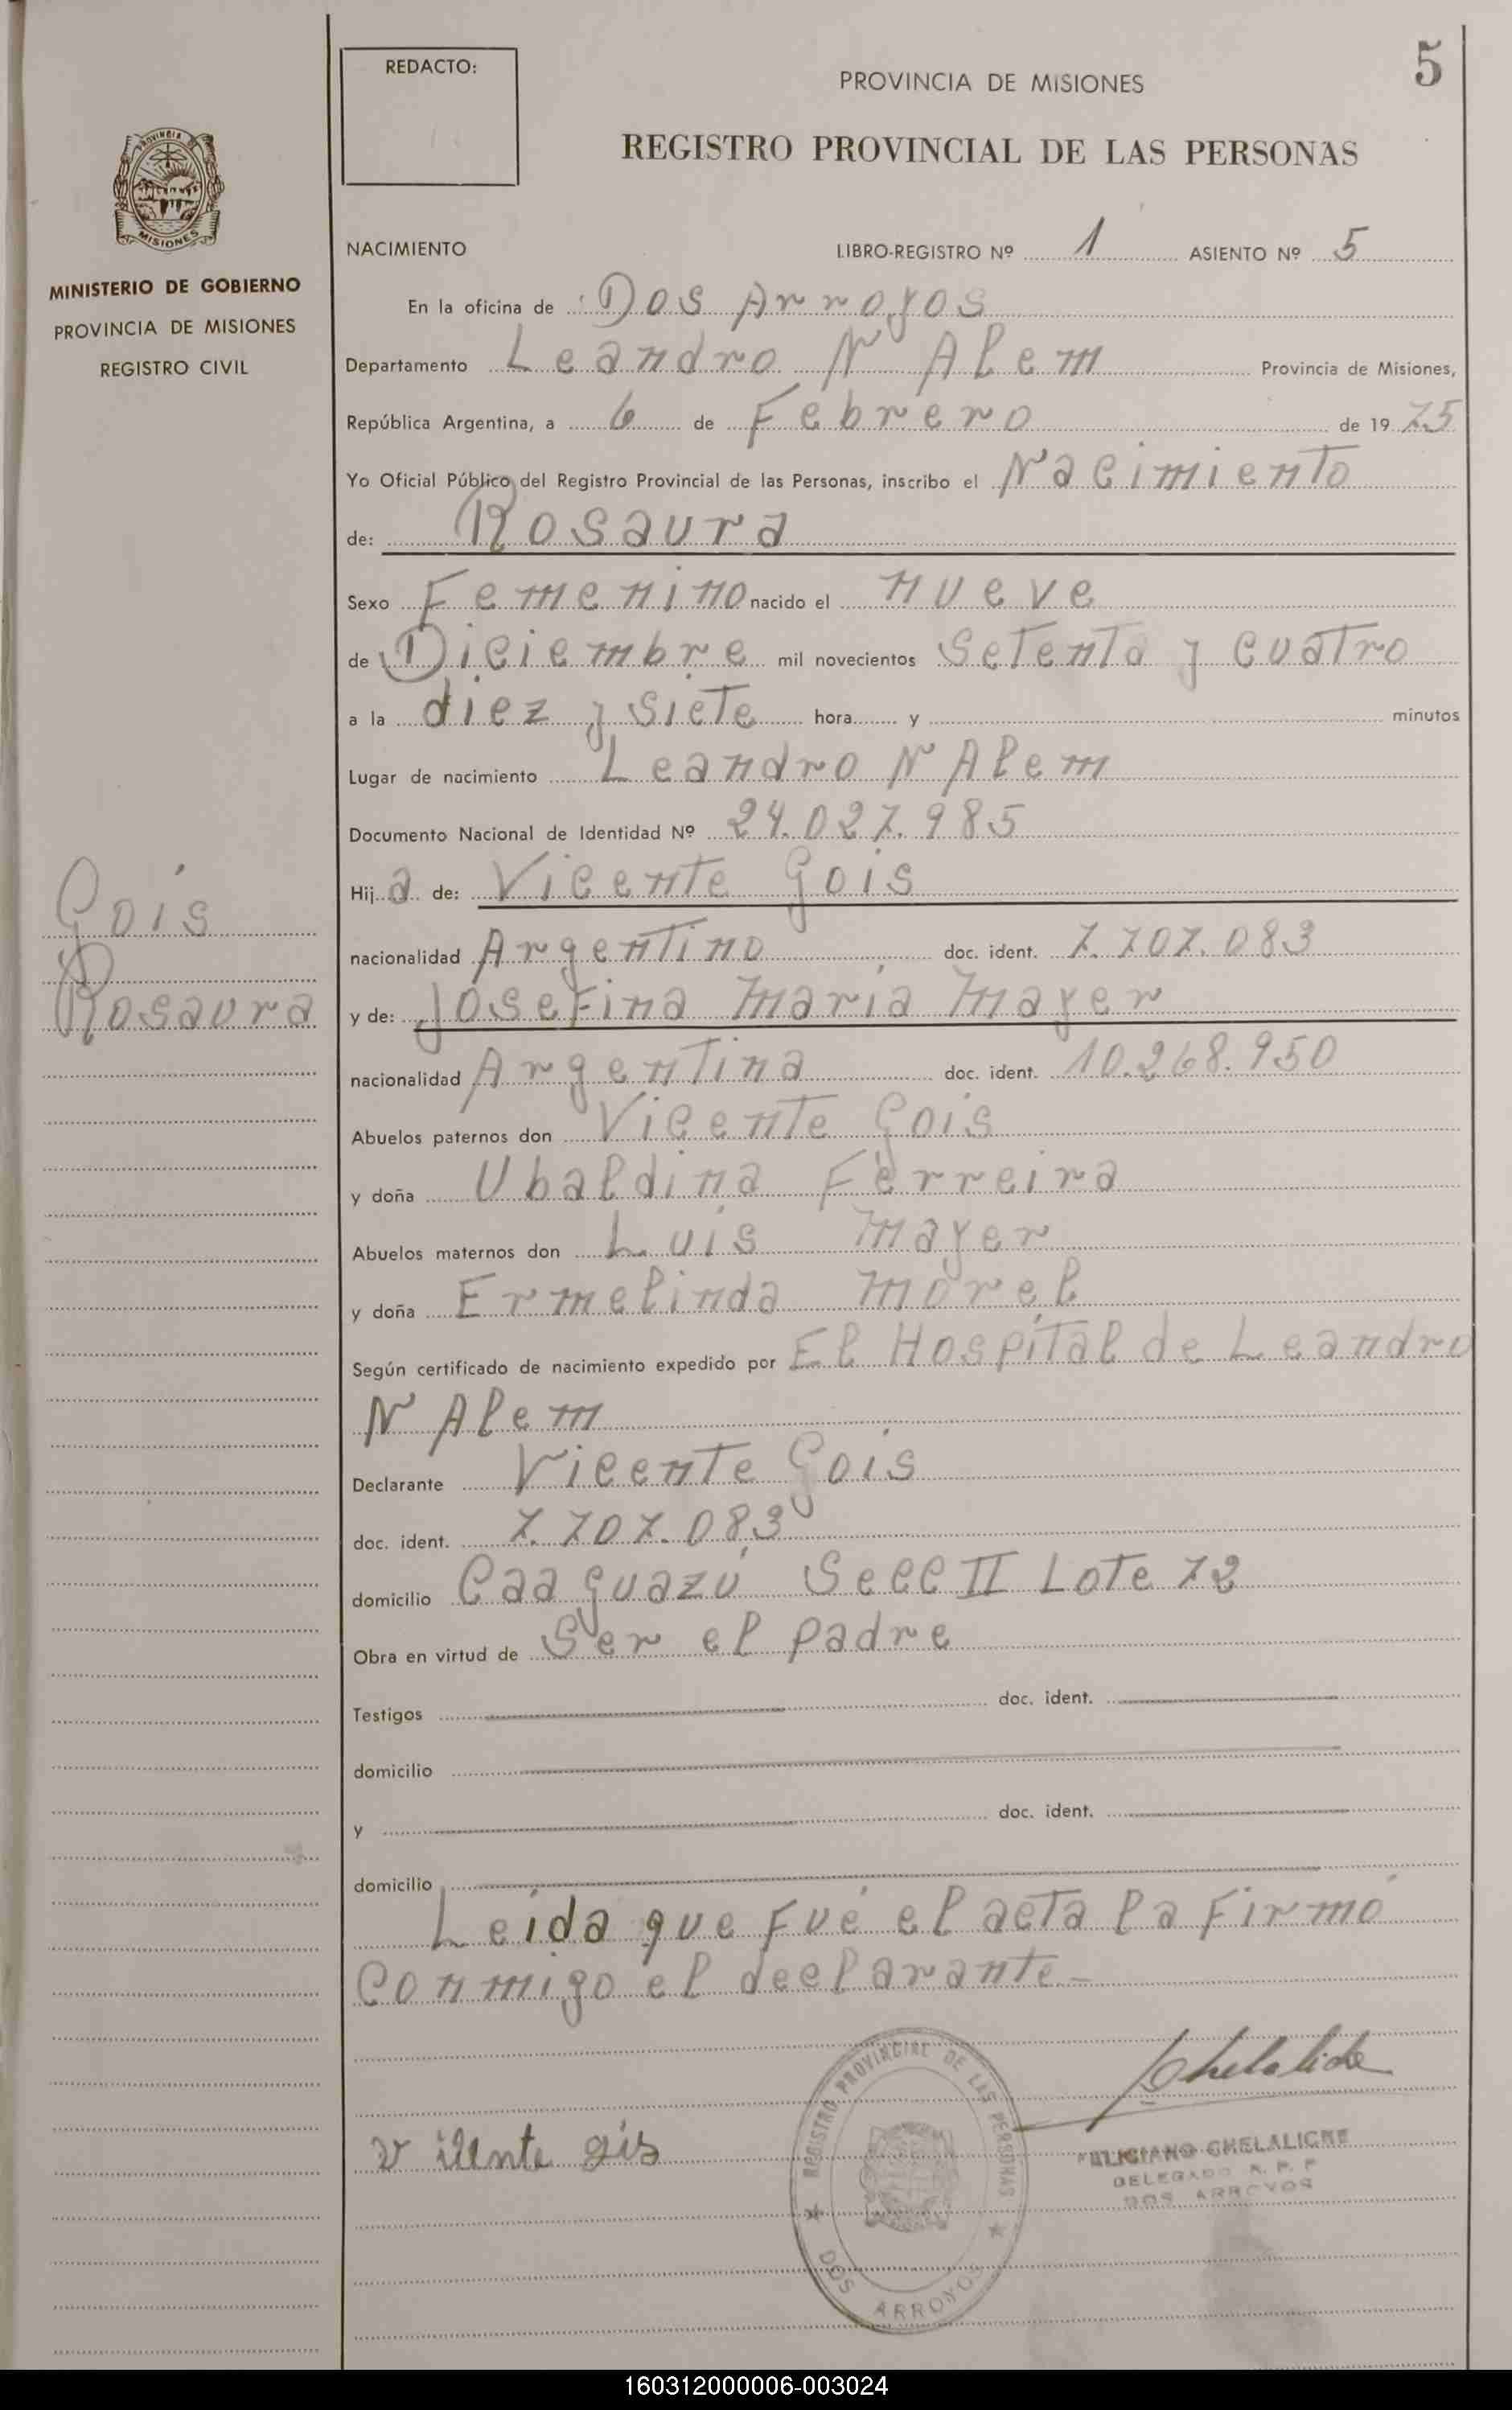 5
REDACTO:
PROVINCIA DE MISIONES
REGISTRO PROVINCIAL DE LAS PERSONAS
PROVINCIA DE
MISIONES
MINISTERIO DE GOBIERNO
PROVINCIA DE MISIONES
REGISTRO CIVIL
NACIMIENTO LIBRO-REGISTRO Nº 1 ASIENTO Nº 5
En la oficina de Dos Arroyos
Departamento Leandro N Alem Provincia de Misiones,
República Argentina, a 6 de Febrero de 1975
Yo Oficial Público del Registro Provincial de las Personas, inscribo el Nacimiento
de: Rosaura
Sexo Femenino nacido el nueve
de Diciembre mil novecientos setenta y cuatro
a la diez y siete hora y minutos
Lugar de nacimiento Leandro N Alem
Documento Nacional de Identidad Nº 24.027.985
Hija de: Vicente Gois
nacionalidad Argentino doc. ident. 7.707.083
y de: Josefina María Mayer
nacionalidad Argentina doc. ident. 10.268.950
Abuelos paternos don Vicente Gois
y doña Ubaldina Ferreira
Abuelos maternos don Luis Mayer
y doña Ermelinda Morel
Según certificado de nacimiento expedido por El Hospital de Leandro
N Alem
Declarante Vicente Gois
doc. ident. 7.707.083
domicilio Caa guazú Secc II Lote 72
Obra en virtud de Ser el padre
Testigos doc. ident.
domicilio
y doc. ident.
domicilio
Leída que fué el acta la firmó
conmigo el declarante
Gois
Rosaura
REGISTRO PROVINCIAL DE LAS PERSONAS
DOS ARROYOS
Chelaliche
FELICIANO CHELALICHE
DELEGADO R. P. P
DOS ARROYOS
160312000006-003024